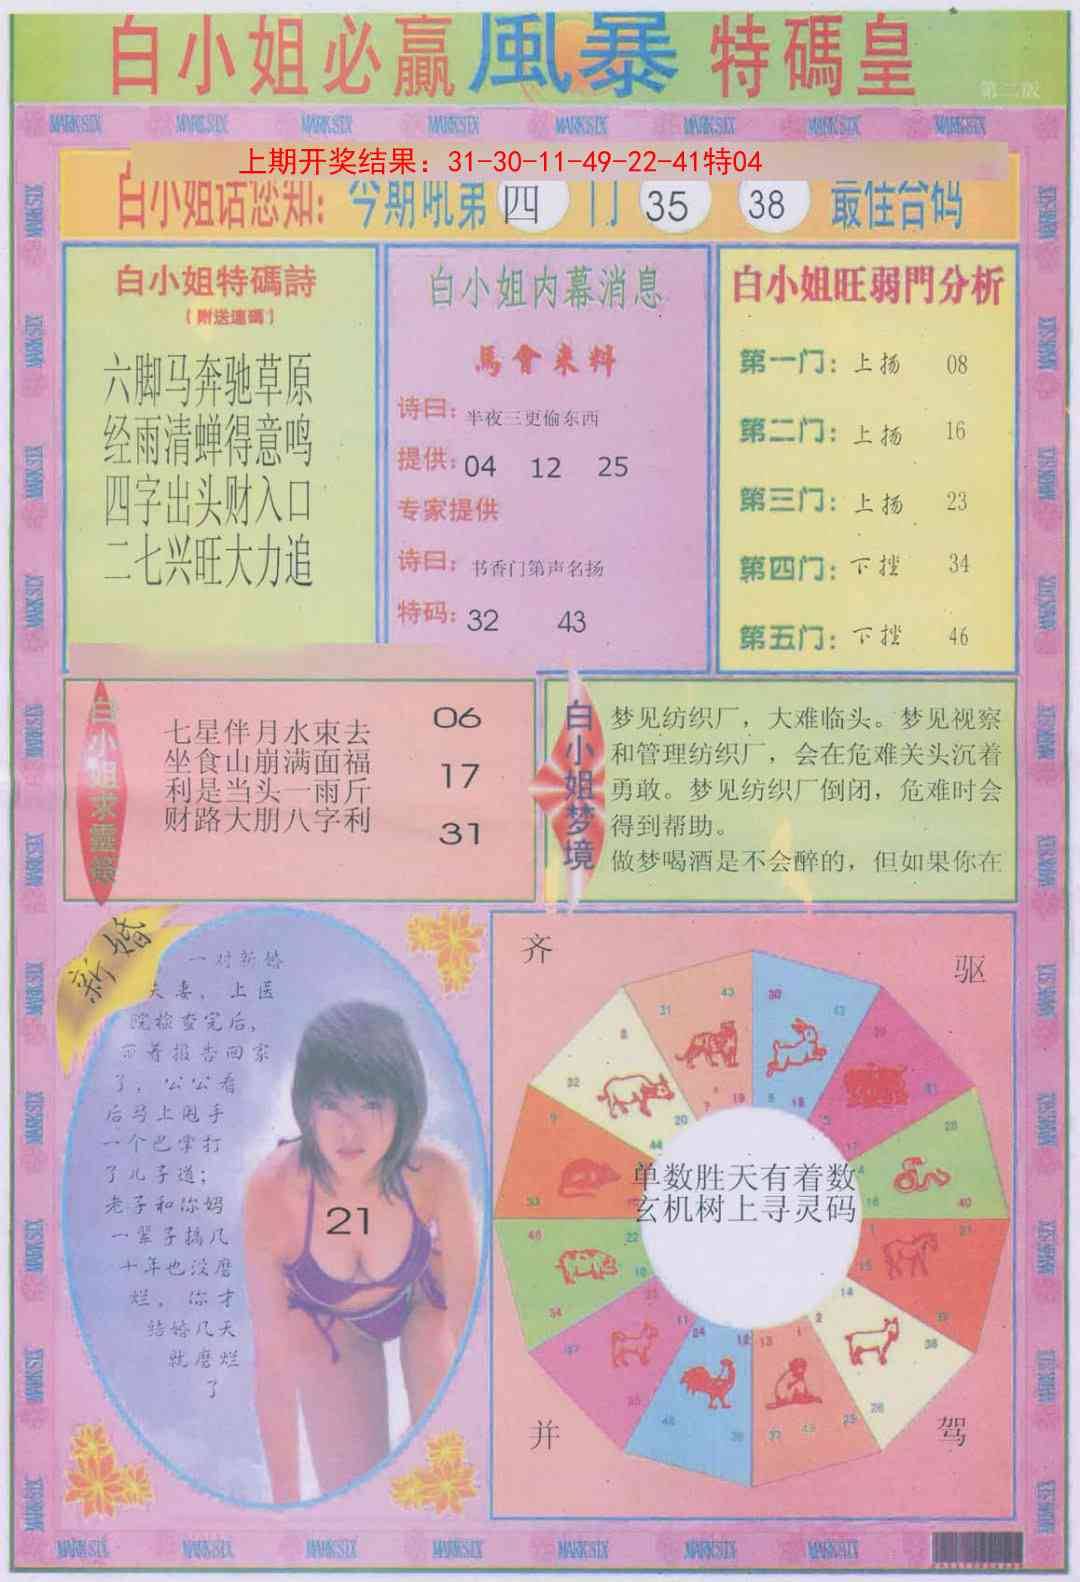 白小姐必贏風暴特碼皇
第二版
MARKSIX MARKSIX MARKSIX MARKSIX MARKSIX MARKSIX MARKSIX MARKSIX
上期开奖结果：31-30-11-49-22-41特04
白小姐话您知：今期吼第四门 35 38 最佳合码
白小姐特碼詩
（附送連碼）
六脚马奔驰草原
经雨清蝉得意鸣
四字出头财入口
二七兴旺大力追
白小姐内幕消息
馬會来料
诗曰：半夜三更偷东西
提供：04 12 25
专家提供
诗曰：书香门第声名扬
特码：32 43
白小姐旺弱門分析
第一门：上扬 08
第二门：上扬 16
第三门：上扬 23
第四门：下挫 34
第五门：下挫 46
白小姐求靈籤
七星伴月水東去
坐食山崩满面福
利是当头一雨斤
财路大朋八字利
06
17
31
白小姐梦境
梦见纺织厂，大难临头。梦见视察
和管理纺织厂，会在危难关头沉着
勇敢。梦见纺织厂倒闭，危难时会
得到帮助。
做梦喝酒是不会醉的，但如果你在
新婚
一对新婚
夫妻，上医
院检查完后，
了，公公看
后马上甩手
一个巴掌打
了儿子道；
老子和你妈
一辈子搞几
十年也没磨
烂，你才
结婚几天
就磨烂
了
21
齐
驱
单数胜天有着数
玄机树上寻灵码
并
驾
MARKSIX MARKSIX MARKSIX MARKSIX MARKSIX MARKSIX MARKSIX